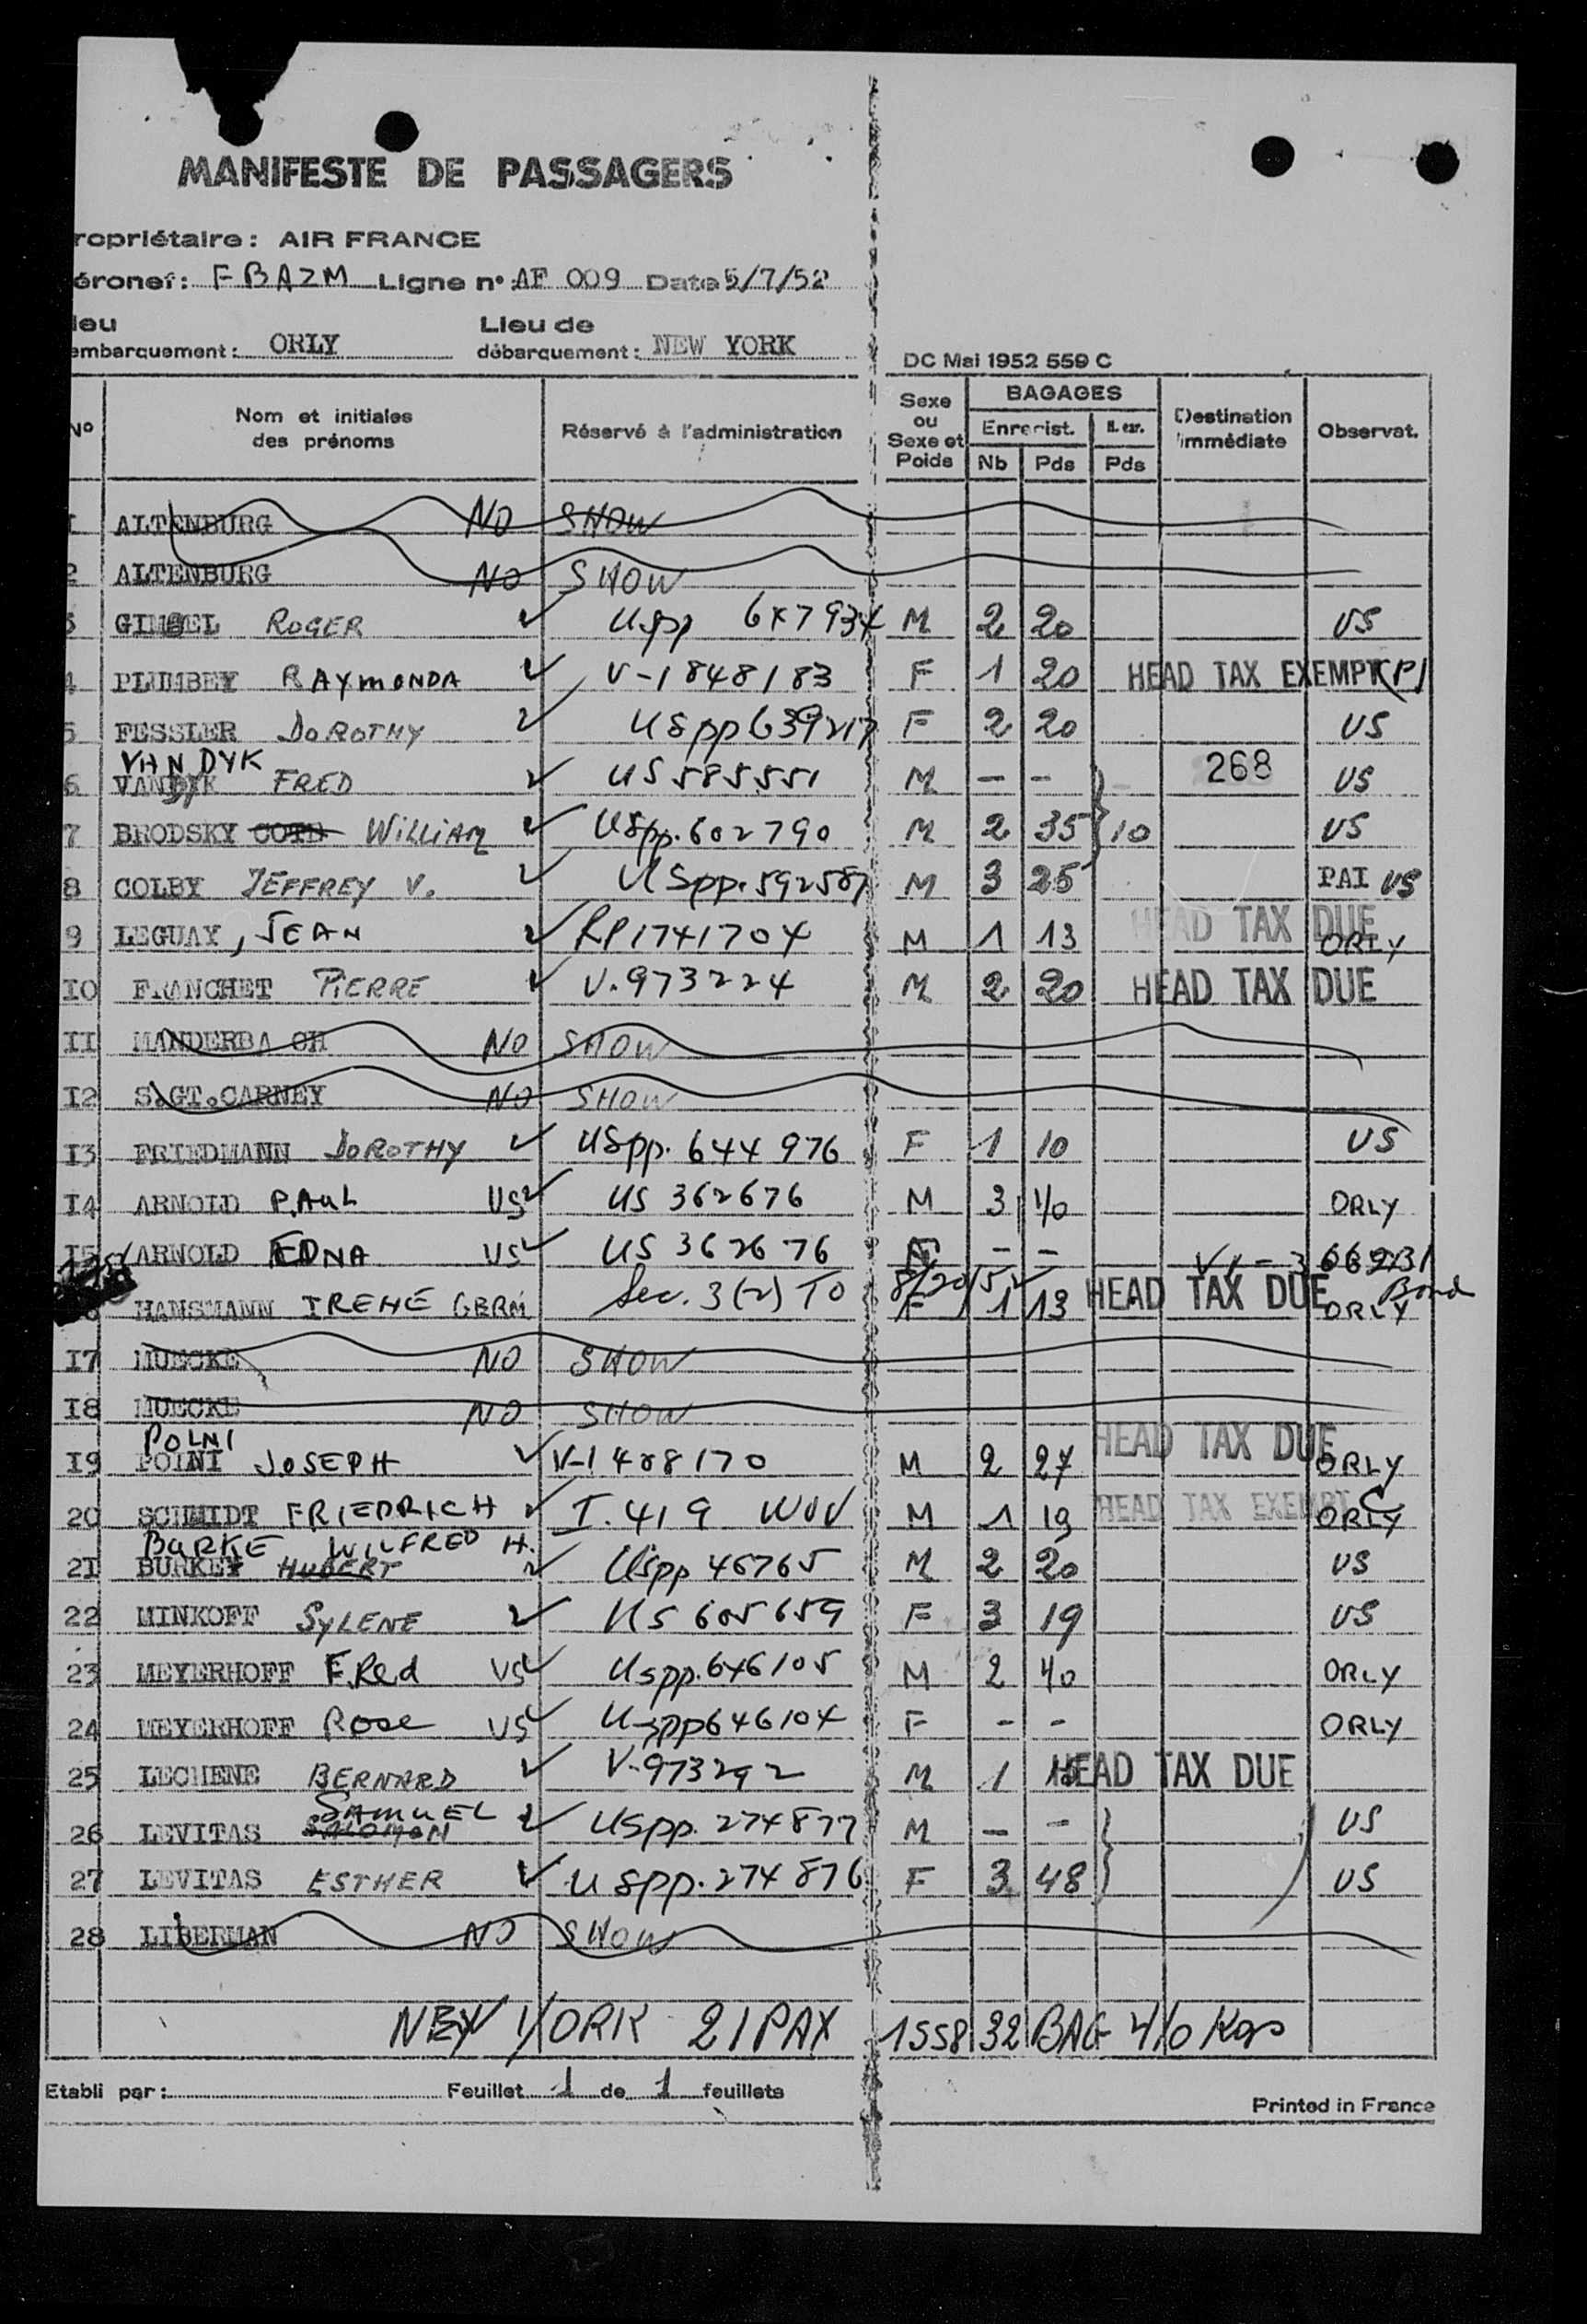 MANIFESTE DE PASSAGERS
ropriétaire : AIR FRANCE
éronef : F BAZM Ligne n° AF 009 Date 5/7/52
ieu Lieu de
embarquement : ORLY débarquement : NEW YORK
DC Mai 1952 559 C
N° Nom et initiales des prénoms Réservé à l'administration Sexe ou Sexe et Poids BAGAGES Enregist. Nb Pds Pds Destination immédiate Observat.
1 ALTENBURG NO SHOW
2 ALTENBURG NO SHOW
GIMBEL ROGER ✓ USpp 647934 M 2 20 US
4 PLUMBEY RAYMONDA ✓ V-1848183 F 1 20 HEAD TAX EXEMPT
5 FESSLER DOROTHY ✓ USpp639217 F 2 20 US
VAN DYK
6 VANDYK FRED ✓ US 585551 M – – 268 US
7 BRODSKY WILLIAM ✓ USpp.602790 M 2 35 } 10 US
8 COLBY JEFFREY V. ✓ USpp.592587 M 3 25 PAI US
9 LEGUAY, JEAN ✓ RP1741704 M 1 13 HEAD TAX DUE ORLY
I0 FRANCHET PIERRE ✓ V.973224 M 2 20 HEAD TAX DUE
II MANDERBACH NO SHOW
I2 S.GT.CARNEY NO SHOW
I3 FRIEDMANN DOROTHY ✓ USpp. 644 976 F 1 10 US
I4 ARNOLD PAUL US ✓ US 362676 M 3 40 ORLY
I5 ARNOLD EDNA US ✓ US 362676 F – –
HANSMANN IRENE GERM Sec. 3(2) TO 8/20/52 F 1 13 HEAD TAX DUE ORLY Bond
I7 MUECKE NO SHOW
I8 MUECKE NO SHOW
POLNI
I9 POINI JOSEPH ✓ V-1488170 M 2 27 HEAD TAX DUE ORLY
20 SCHMIDT FRIEDRICH ✓ I. 419 M 1 19 HEAD TAX EXEMPT ORLY
BURKE WILFRED H.
2I BURKEY HUBERT ✓ USpp 46765 M 2 20 US
22 MINKOFF SYLENE ✓ US 605659 F 3 19 US
23 MEYERHOFF FRed US ✓ USpp.646105 M 2 40 ORLY
24 MEYERHOFF Rose US ✓ USpp646104 F – – ORLY
25 LECHENE BERNARD ✓ V-973292 M 1 HEAD TAX DUE
SAMUEL
26 LEVITAS SALOMON ✓ USpp. 274877 M – – US
27 LEVITAS ESTHER ✓ USpp.274876 F 3 48 US
28 LIBERMAN NO SHOW
NEW YORK 21 PAX 1558 32 BAG 410 Kgs
Etabli par : Feuillet 1 de 1 feuillets
Printed in France